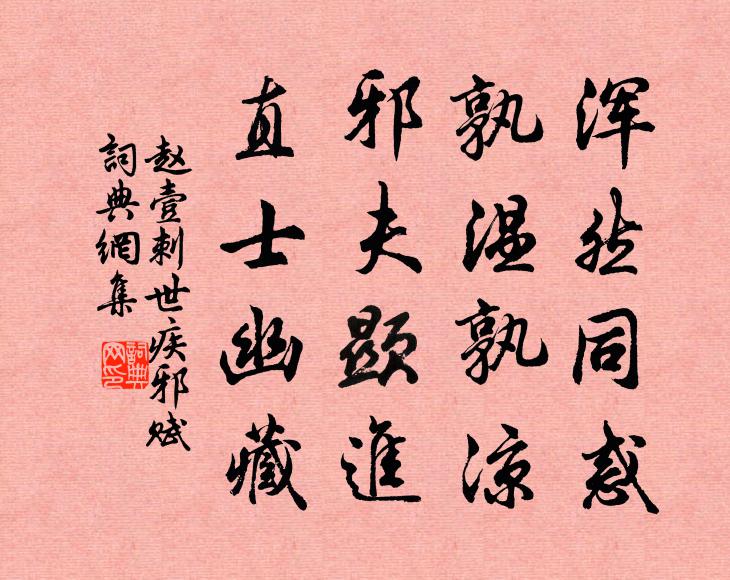 浑然同惑
孰温孰凉
邪夫显進
直士幽藏
赵壹刺世疾邪赋
詞典網集
詞典网印